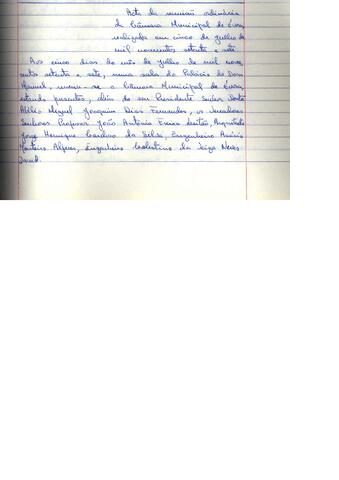 Acta da reunião ordinária
da Câmara Municipal de Évora,
realizada em cinco de Julho de
mil novecentos setenta e sete
Aos cinco dias do mês de Julho de mil nove,
centos setenta e sete, numa sala do Palácio de Dom
Manuel, reuniu-se a Câmara Municipal de Évora,
estando presentes, além do seu Presidente Senhor Doutor
Abílio Miguel Joaquim Dias Fernandes, os Vereadores
Senhores Professor João António Leitão, Arquitecto
Jorge Henrique Cardoso da Silva, Engenheiro
Martins Alpees, Engenheiro da Veiga Neves
David.